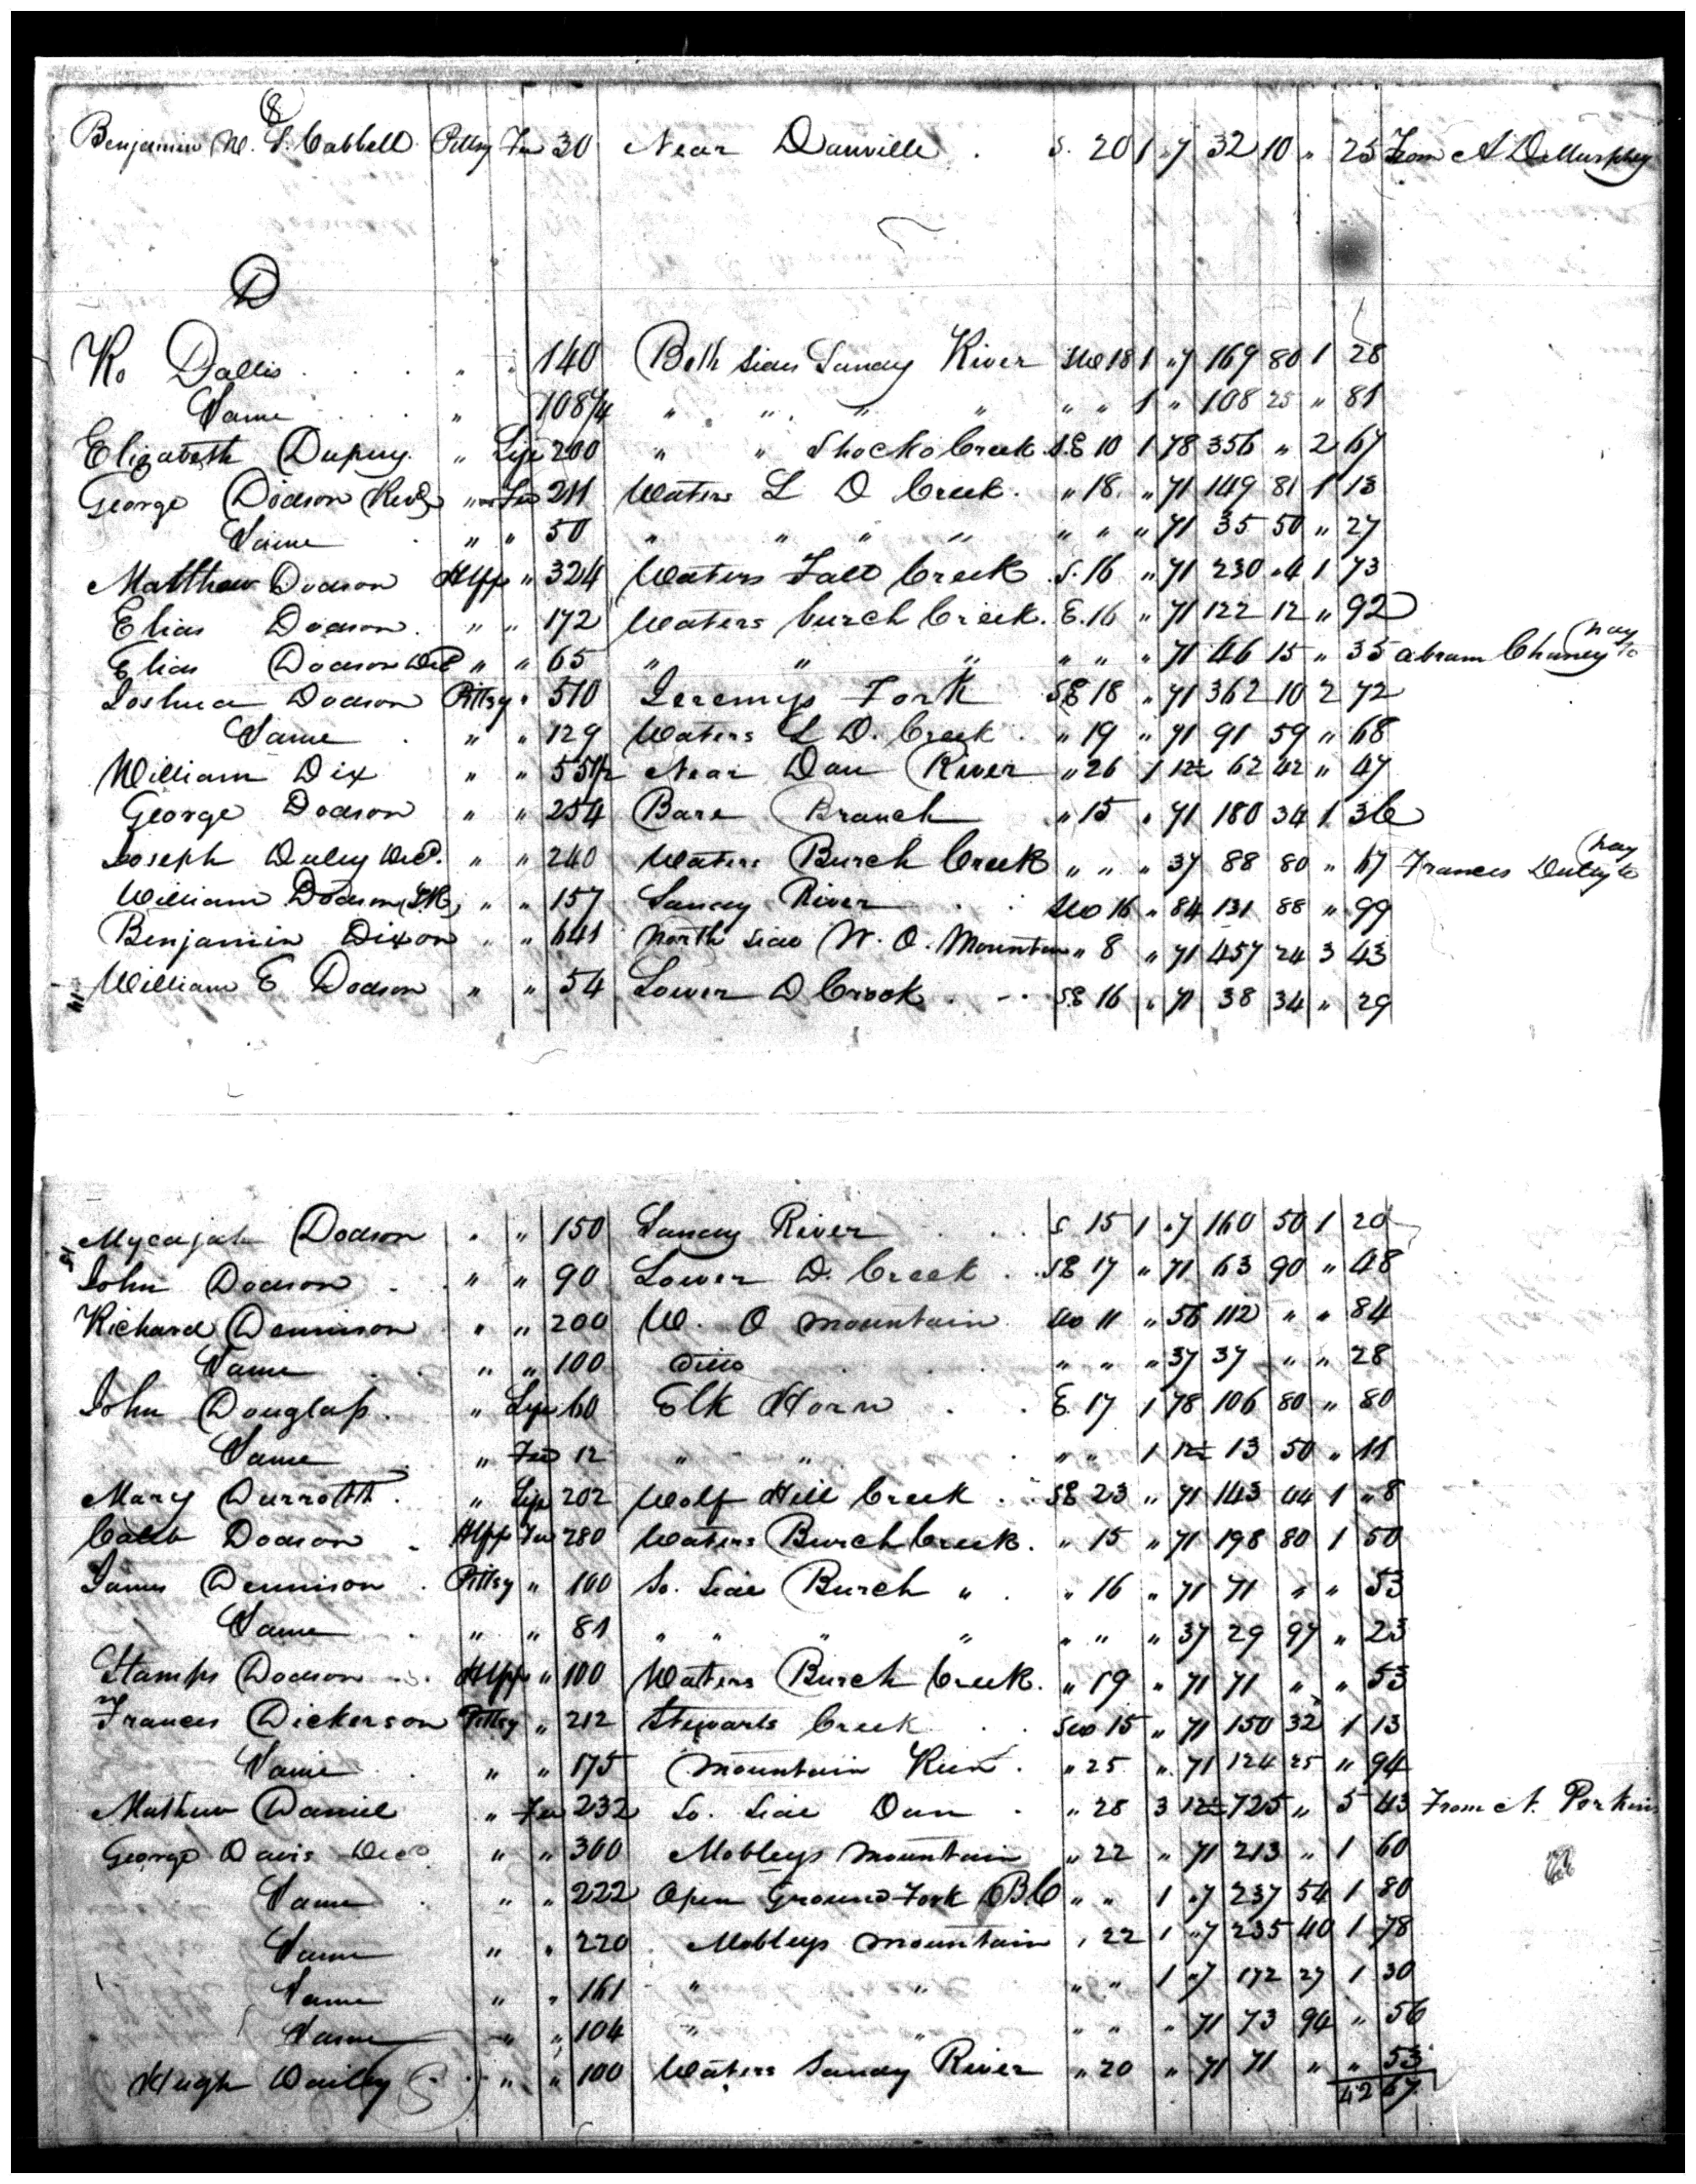 8
Benjamin W. S. Cabbell Pittsy Fee 30 Near Danville . S. 20 1 "7 32 10 " 25 From A D Murphey
D
Ro Dallis . . . " " 140 Both sides Sandy River SW 18 1 "7 169 80 1 28
Same . . " 108 1/4 " " " " " " 1 " 108 25 " 81
Elizabeth Dupuy " Life 200 " " Shocko Creek S.E 10 1 78 356 " 2 67
George Dodson " Fee 211 Waters L D Creek . " 18 " 71 149 81 1 13
Same . " " 50 " " " " " " " 71 35 50 " 27
Matthew Dodson Hfx " 324 Waters Fall Creek S. 16 " 71 230 "4 1 73
Elias Dodson . " " 172 Waters burch Creek. E. 16 " 71 122 12 " 92
Elias Dodson Decd " " 65 " " " " " " 71 46 15 " 35 Abram Chaney to pay
Joshua Dodson Pittsy " 510 Jeremys Fork SE 18 " 71 362 10 2 72
Same . " " 129 Waters L D. Creek . " 19 " 71 91 59 " 68
William Dix " " 55 1/2 Near Dan River " 26 1 12 1/2 62 42 " 47
George Dodson " " 254 Bare Branch " 15 " 71 180 34 1 36
Joseph Duley Decd. " " 240 Waters Burch Creek " " " 37 88 80 " 67 Frances Duley to pay
William Dodson " " 157 Sandy River . . SW 16 " 84 131 88 " 99
Benjamin Dixon " " 641 North Side W. O. Mountain " 8 " 71 457 24 3 43
14 William E Dodson " " 54 Lower D Creek . - . SE 16 " 71 38 34 " 29
15 Mycajah Dodson " " 150 Sandy River . . . S 15 1 "7 160 50 1 20
John Dodson . . " " 90 Lower D. Creek . . SE 17 " 71 63 90 " 48
Richard Dennison " " 200 W. O Mountain Wo 11 " 56 112 " " 84
Same . . " " 100 Ditto . . . " " " 37 37 " " 28
John Douglass . " Life 60 Elk Horn . . E. 17 1 78 106 80 " 80
Same . " Fee 12 " " . . " " 1 12 1/2 13 50 " 11
Mary Durrottt . " Life 202 Wolf Hill Creek . . SE 23 " 71 143 04 1 "8
Caleb Dodson . Hfx Fee 280 Waters Burch Creek . " 15 " 71 198 80 1 50
James Dennison . Pittsy " 100 So. Side Burch " . " 16 " 71 71 " " 53
Same . " " 81 " " " " " " " 37 29 97 " 23
Stamps Dodson . . Hfx " 100 Waters Burch Creek. " 19 " 71 71 " " 53
Frances Dickerson Pittsy " 212 Stewarts Creek . . SW 15 " 71 150 32 1 13
Same . " " 175 Mountain Run . " 25 " 71 124 25 " 94
Mathew Daniel " Fee 232 So. Side Dan . " 28 3 12 1/2 725 " 5 43 From N. Perkins
George Davis Decd " " 300 Mobleys Mountain " 22 " 71 213 " 1 60
Same . " " 222 Open Ground Fork B.C " " 1 "7 237 54 1 80
Same " " 220 . Mobleys Mountain " 22 1 "7 235 40 1 78
Same " " 161 " " " " 1 "7 172 27 1 30
Same " " 104 " " " " " 71 73 94 " 56
Hugh Dailey . " " 100 Waters Sandy River " 20 " 71 71 " " 53
42 67